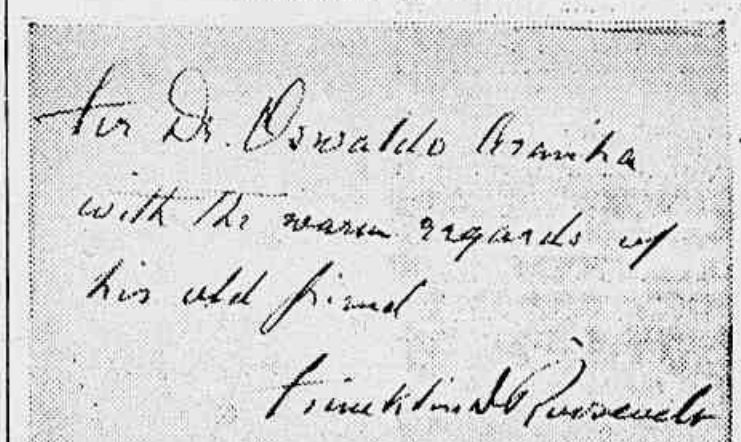 for Dr. Oswaldo Aranha
with the warm regards of
his old friend
Franklin D Roosevelt